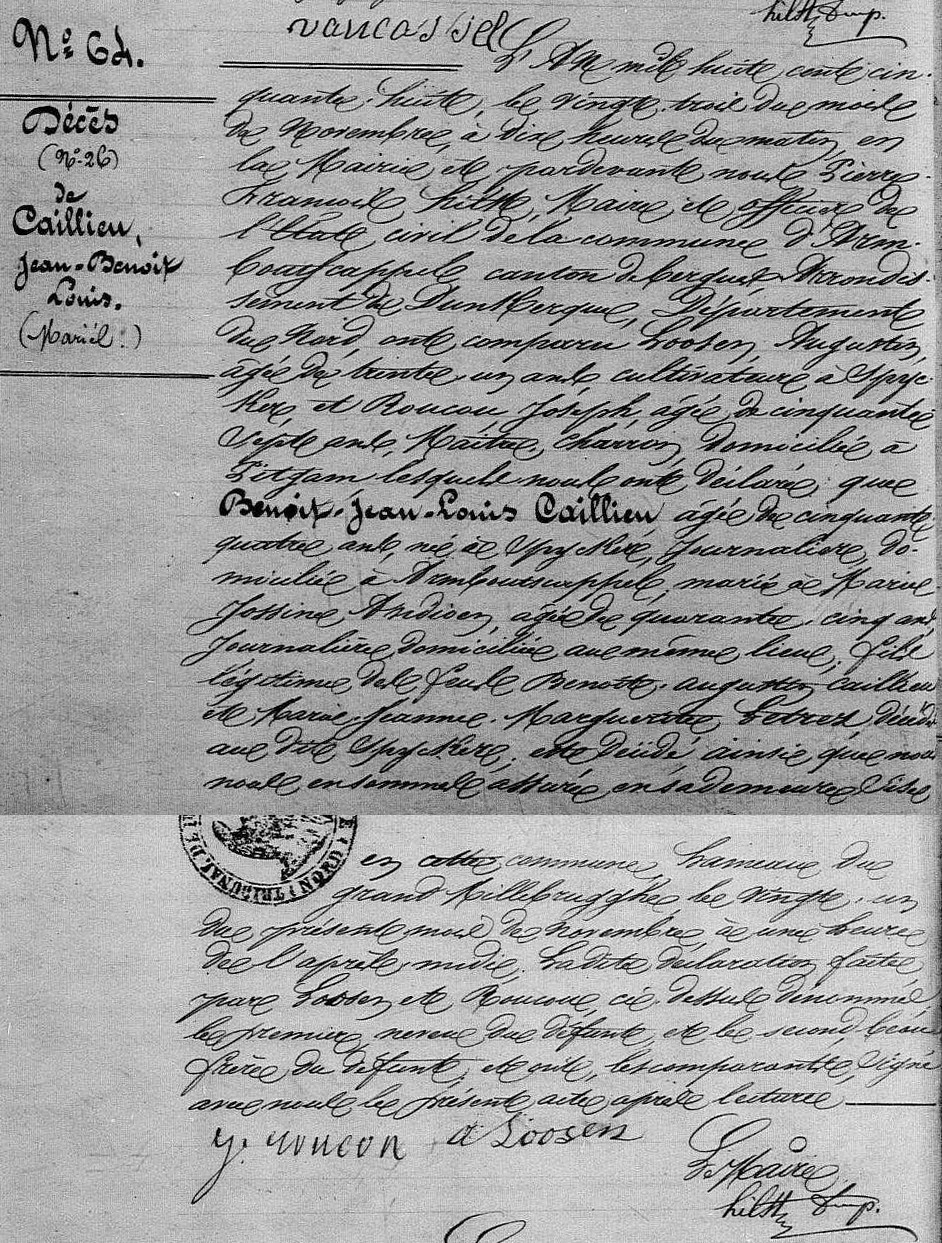 vancassel
hiltt
N° 64.
Décès
(N° 26)
de
Caillieu,
Jean-Benoit
Louis.
(Marié.)
L'An mil huit cent cin-
quante-huit, le vingt-trois du mois
de Novembre, à dix heures du matin, en
la Mairie et pardevant nous Pierre-
François hiltt, Maire et officier de
l'état civil de la commune d'Arm-
boutscappel, canton de Bergues, Arrondis-
sement de Dunkerque, Département
du Nord, ont comparu Loosen, Augustin,
âgé de trente-un ans, cultivateur à Spyc-
ker, et Roucou, Joseph, âgé de cinquante
sept ans, Maître-charron, domicilié à
Pitgam lesquels nous ont déclaré, que
Benoit-Jean-Louis Caillieu âgé de cinquante
quatre ans, né à Spycker, Journalier, do-
micilié à Armboutscappel, marié à Marie
Jossine Andioen, âgée de quarante-cinq ans,
Journalière domiciliée au même lieu, fils
légitime des feus Benoit-augustin Caillieu
et Marie-Jeanne-Marguerite décédés
au dit Spycker, est décédé, ainsi que nous
nous en sommes assuré en sa demeure sise
TRIBUNAL DE
en cette commune, hameau du
grand Millebrugghe le vingt-un
du présent mois de novembre à une heure
de l'après-midi. Ladite déclaration faite
par Loosen et Roucou ci-dessus dénommés
le premier neveu du défunt, et le second beau
frère du défunt, et ont, les comparants, signé
avec nous le présent acte après lecture
J. roucou a Loosen
Le Maire
hiltt